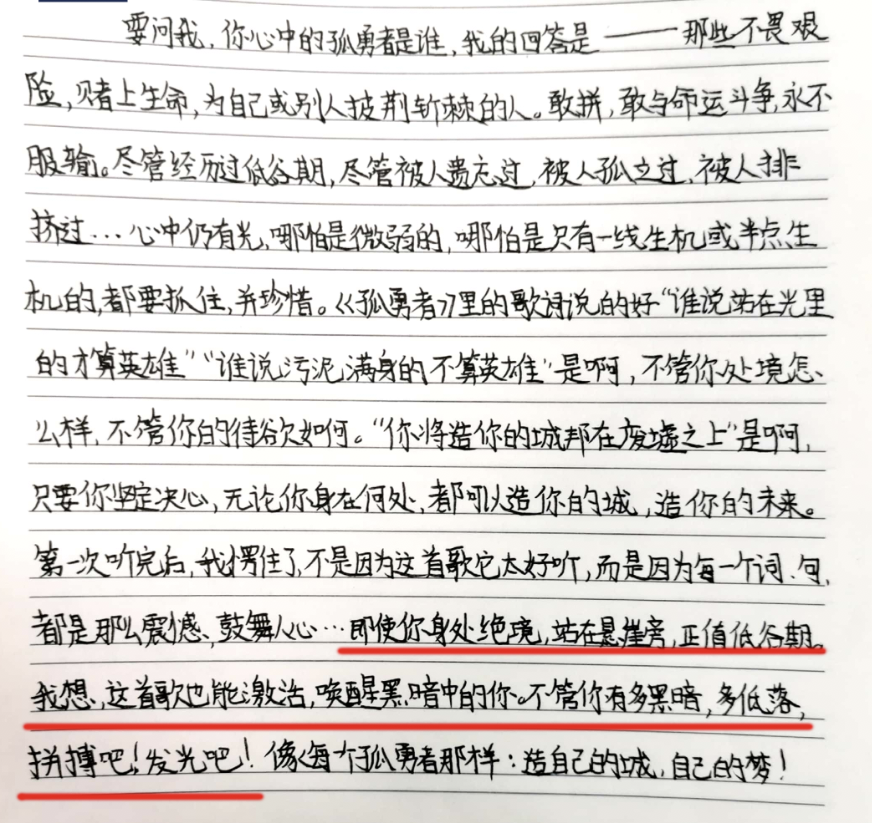 要问我，你心中的孤勇者是谁，我的回答是——那些不畏艰
险，赌上生命，为自己或别人披荆斩棘的人。敢拼，敢与命运斗争，永不
服输。尽管经历过低谷期，尽管被人遗忘过，被人孤立过，被人排
挤过…心中仍有光，哪怕是微弱的，哪怕是只有一线生机或半点生
机的，都要抓住，并珍惜。《孤勇者》里的歌词说的好“谁说站在光里
的才算英雄”“谁说污泥满身的不算英雄”是啊，不管你处境怎
么样，不管你的待欲如何。“你将造你的城邦在废墟之上”是啊，
只要你坚定决心，无论你身在何处，都可以造你的城，造你的未来。
第一次听完后，我愣住了，不是因为这首歌它太好听，而是因为每一个词、句，
都是那么震憾、鼓舞人心…即使你身处绝境，站在悬崖旁，正值低谷期。
我想，这首歌也能激活，唤醒黑暗中的你。不管你有多黑暗，多低落，
拼搏吧！发光吧！像每个孤勇者那样：造自己的城，自己的梦！